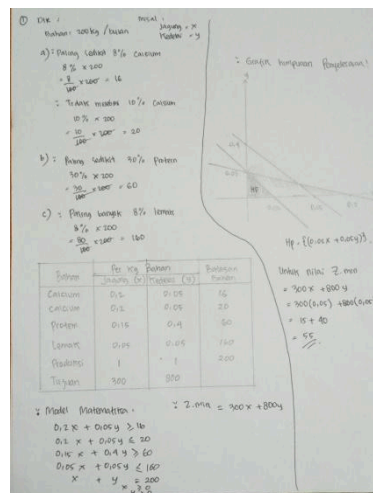 ① Dik :
Bahan: 200 kg / bulan
Misal :
Jagung = x
Kedelai = y
a) : Paling sedikit 8% calsium
8% x 200
= 8/100 x 200 = 16
: Tidak melebihi 10% calsium
10% x 200
= 10/100 x 200 = 20
b) : Paling sedikit 30% protein
30% x 200
= 30/100 x 200 = 60
c) : Paling banyak 8% lemak
8% x 200
= 80/100 x 200 = 160
Bahan
Per Kg Bahan
Jagung (x)
Kedelai (y)
Batasan
Calsium 0,2 0,05 16
calsium 0,2 0,05 20
Protein 0,15 0,4 60
Lemak 0,05 0,05 160
Produksi 1 1 200
Tujuan 300 800
: Model Matematika :
0,2 x + 0,05 y ≥ 16
0,2 x + 0,05 y ≤ 20
0,15 x + 0,4 y ≥ 60
0,05 x + 0,05 y ≤ 160
x + y = 200
x ≥ 0
: Z.min = 300x + 800y
: Grafik himpunan Penyelesaian :
y
HP
Hp = {(0,05x + 0,05y)}
Untuk nilai Z min
= 300 x + 800 y
= 300 (0,05) + 800 (0,05
= 15 + 40
= 55